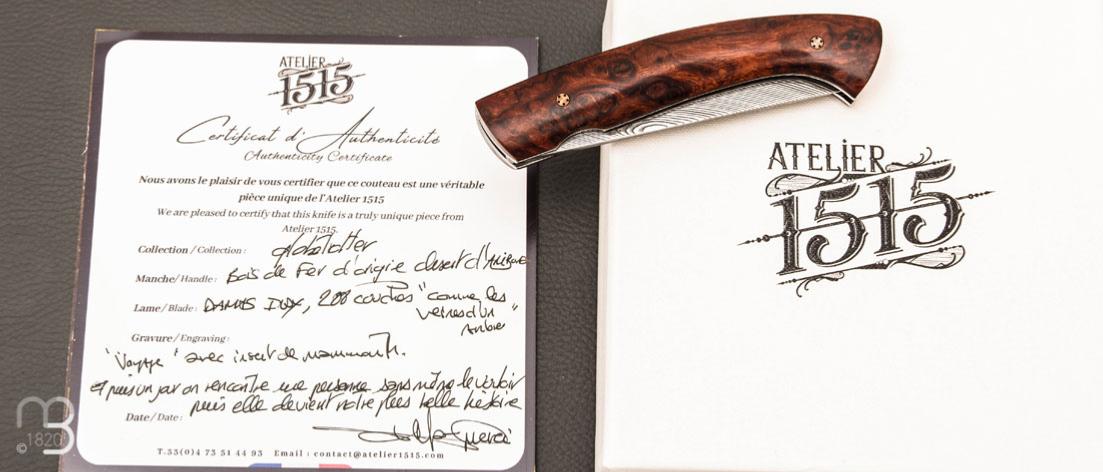 ATELIER
1515
Certificat d'Authenticité
Authenticity Certificate
Nous avons le plaisir de vous certifier que ce couteau est une véritable
pièce unique de l'Atelier 1515
We are pleased to certify that this knife is a truly unique piece from
Atelier 1515.
Collection / Collection : globetrotter
Manche / Handle : Bois de Fer d'origine desert d'
Lame / Blade : DAMAS INOX, 200 couches "comme les
veines d'un
Arbre"
Gravure / Engraving :
"Voyage" avec insert de mammouth.
et puis un jour on rencontre une personne sans même le vouloir
puis elle devient notre plus belle histoire
Date / Date :
T.33(0)4 73 51 44 93 Email : contact@atelier1515.com
ATELIER
1515
©1820